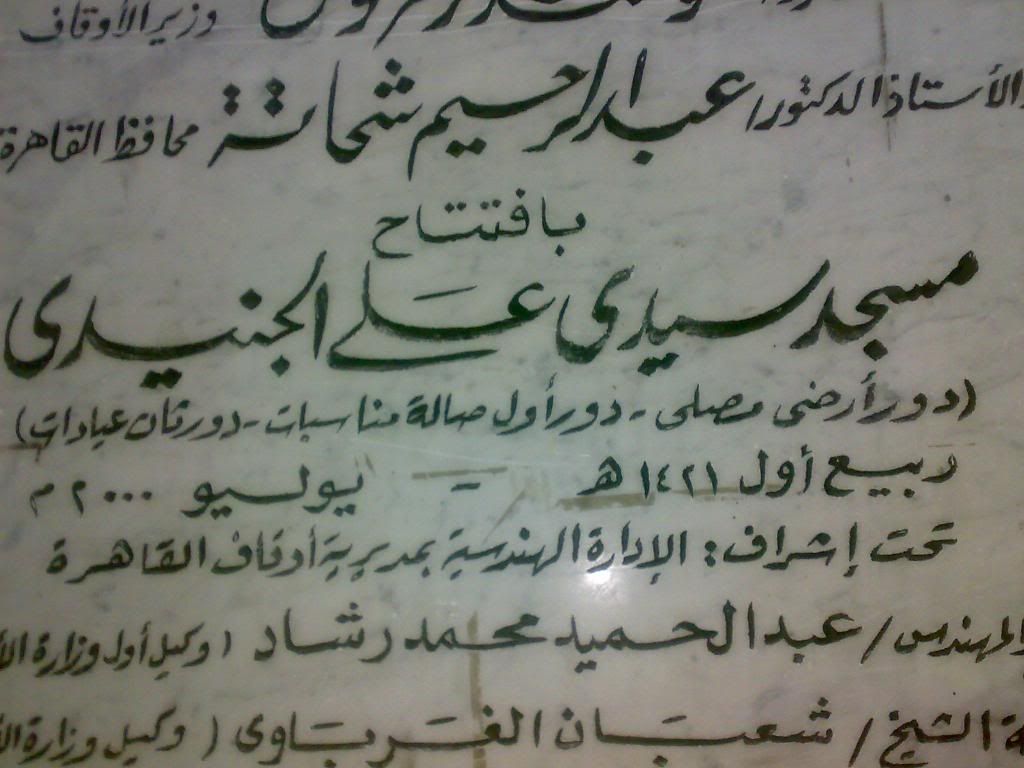 وزير الأوقاف
الأستاذ الدكتور/ عبد الرحيم شحاتة محافظ القاهرة
بافتتاح
مسجد سيدى على الجنيدى
(دور أرضى مصلى - دور أول صالة مناسبات - دور ثان عيادات)
ربيع أول ١٤٢١ هـ - يوليو ٢٠٠٠ م
تحت إشراف: الإدارة الهندسية بمديرية أوقاف القاهرة
المهندس / عبد الحميد محمد رشاد (وكيل أول وزارة
الشيخ / شعبان الغرباوى (وكيل وزارة